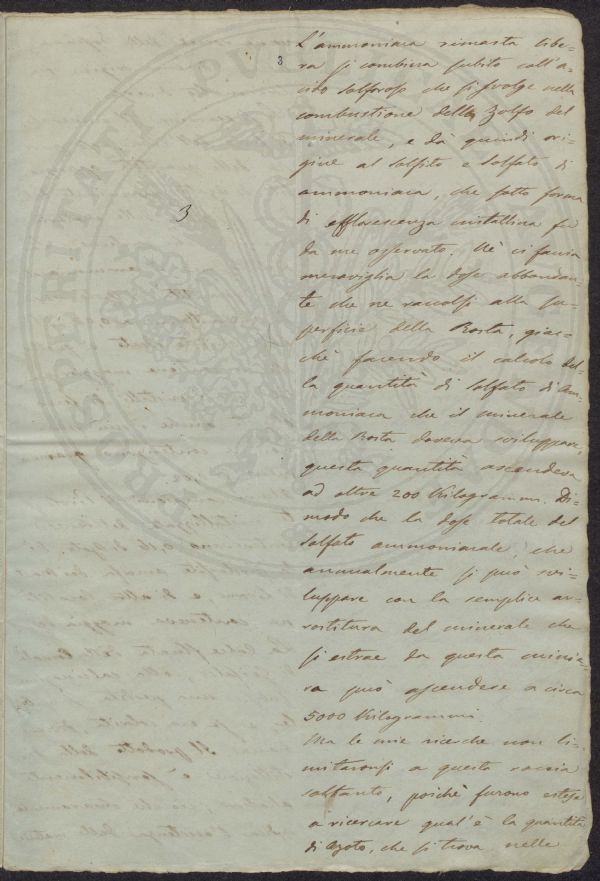 3
3
L'ammoniaca rimasta libe-
ra si combina subito coll'a-
cido solforoso che si svolge nella
combustione dello Zolfo del
minerale, e dà quindi ori-
gine al solfito e solfato di
ammoniaca, che sotto forma
di efflorescenza cristallina fu
da me osservato. Nè ci faccia
meraviglia la dose abbondan-
te che ne raccolsi alla su-
perficie della Rosta, giac-
chè facendo il calcolo del-
la quantità di solfato di am-
moniaca che il minerale
della Rosta doveva sviluppare,
questa quantità ascendeva
ad oltre 200 Kilogrammi. Di-
modo che la dose totale del
solfato ammoniacale, che
annualmente si può svi-
luppare con la semplice ar-
rostitura del minerale che
si estrae da questa minie-
ra può ascendere a circa
5000 Kilogrammi.
Ma le mie ricerche non li-
mitaronsi a questa roccia
soltanto, poichè furono estese
a ricercare qual'è la quantità
di Azoto, che si trova nelle